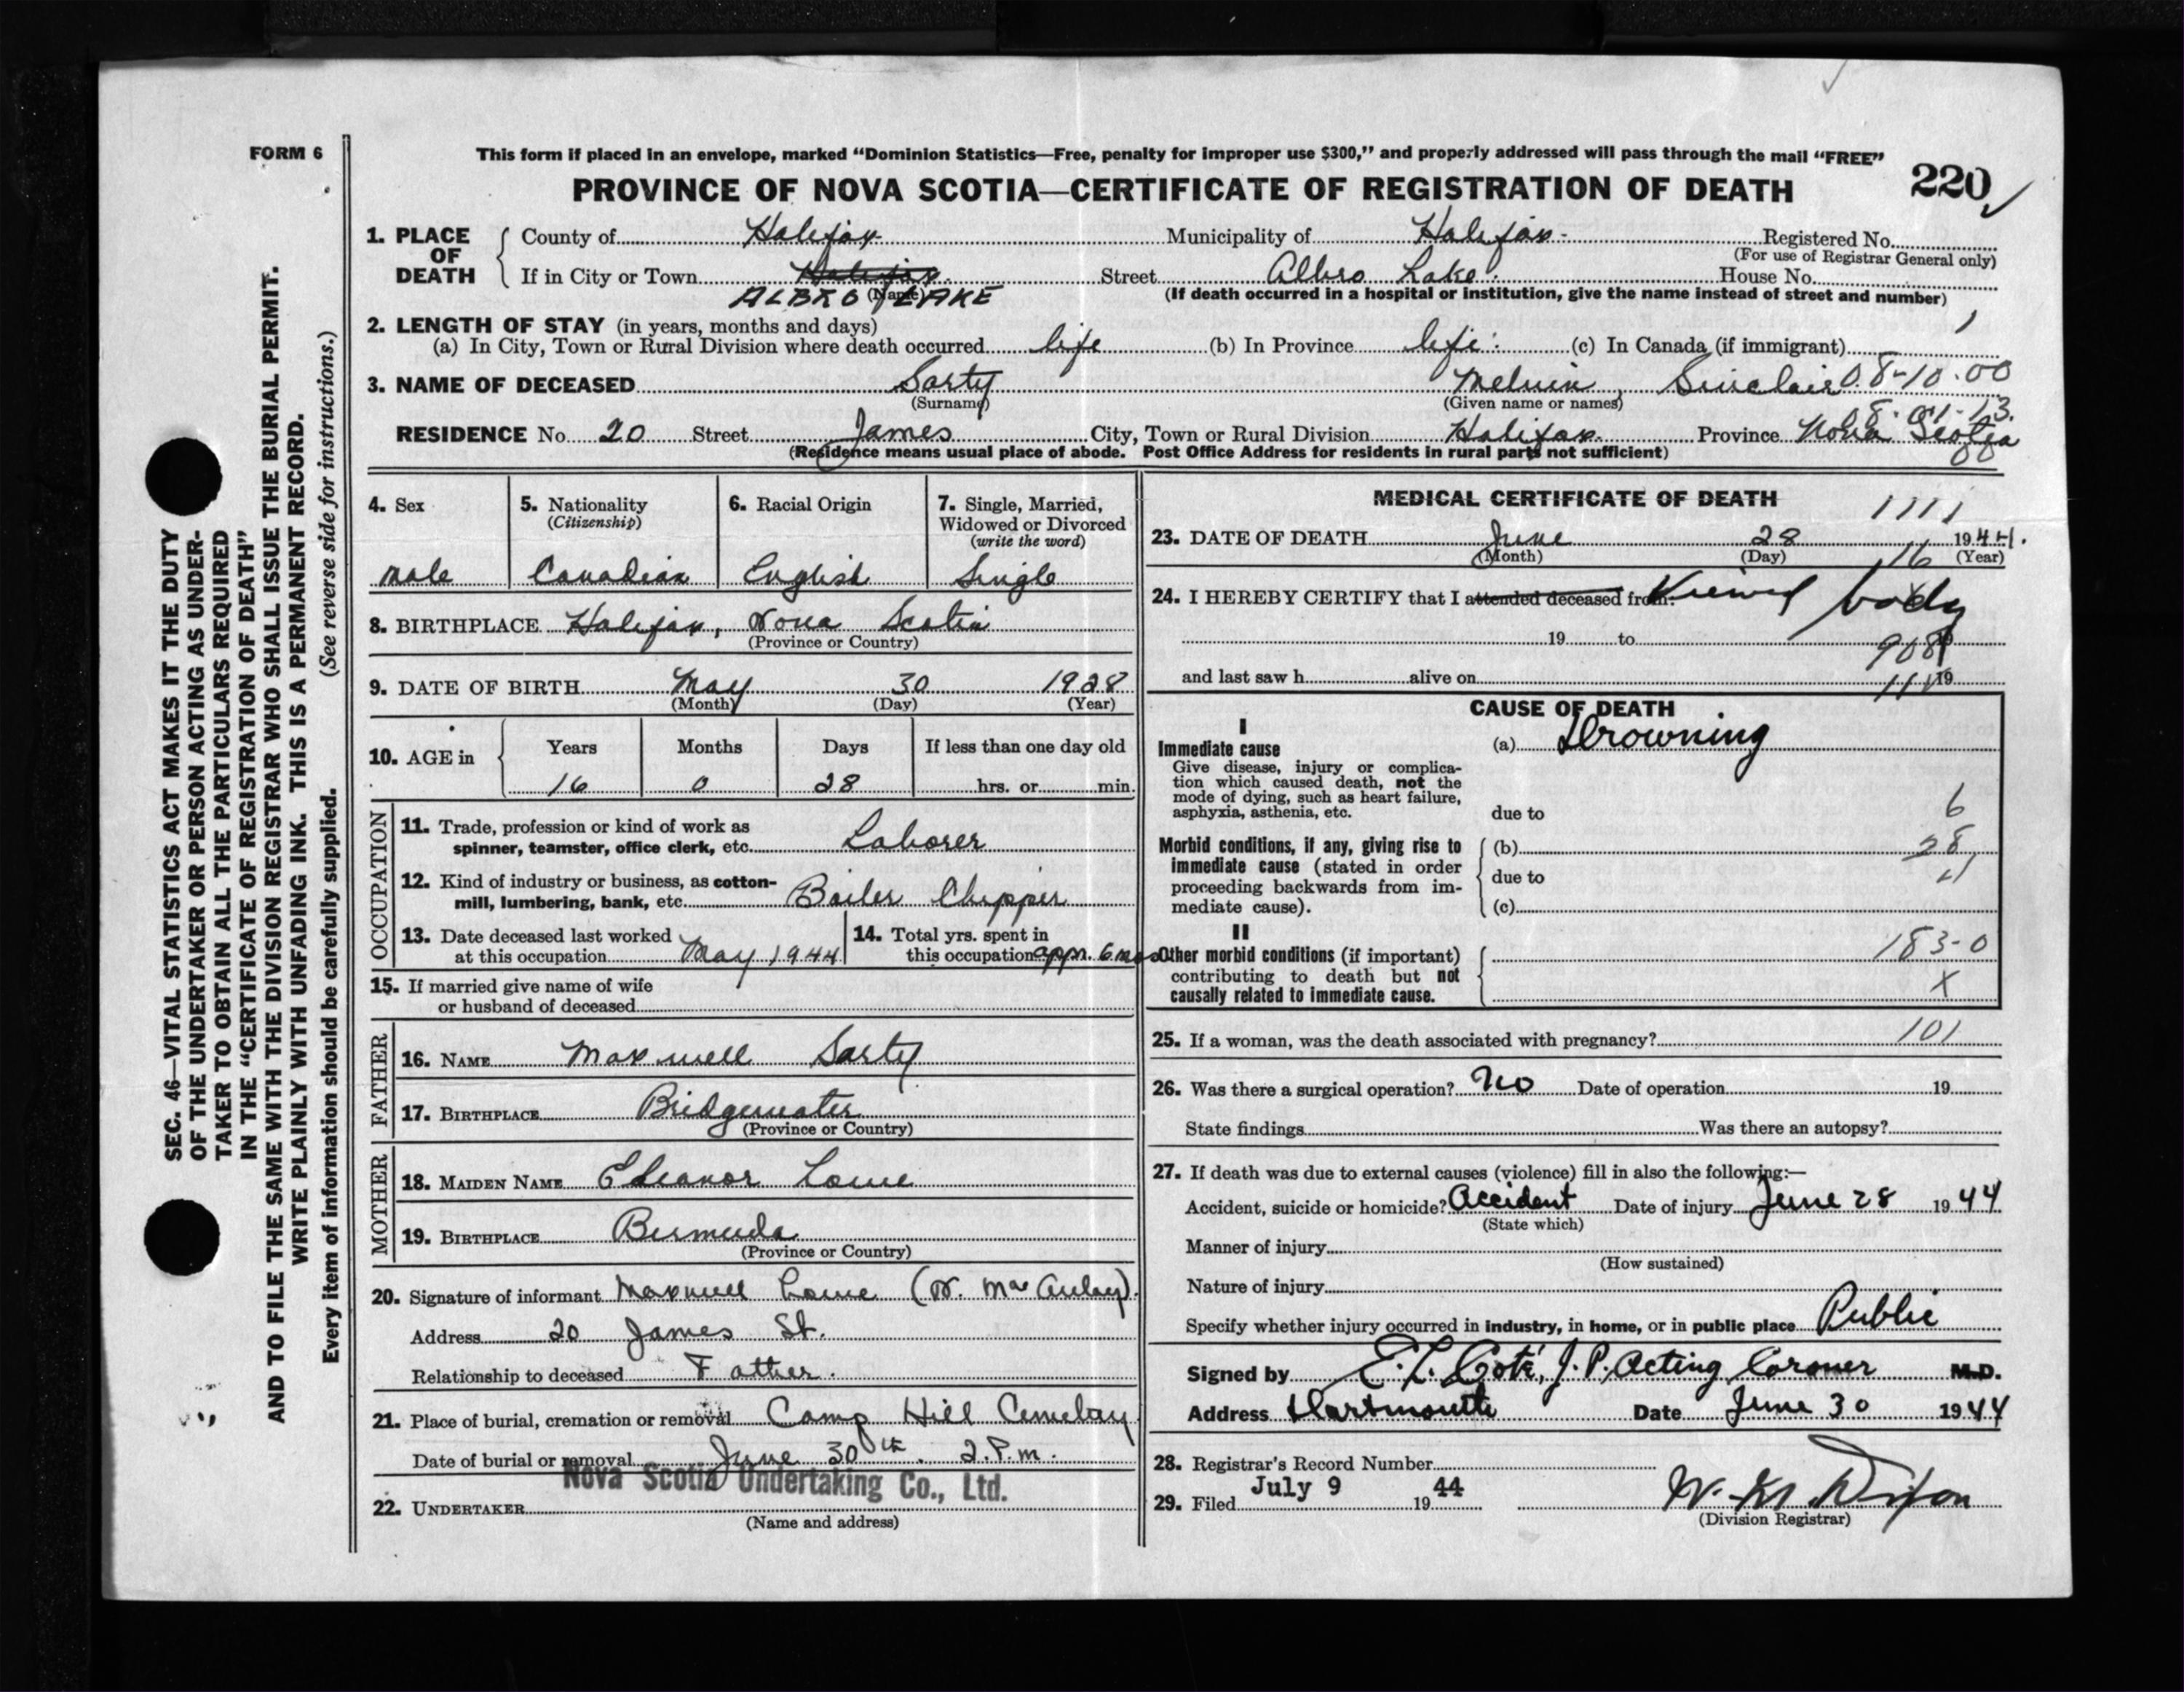 FORM 6
This form if placed in an envelope, marked “Dominion Statistics—Free, penalty for improper use $300,” and properly addressed will pass through the mail “FREE”
PROVINCE OF NOVA SCOTIA—CERTIFICATE OF REGISTRATION OF DEATH
220
SEC. 46—VITAL STATISTICS ACT MAKES IT THE DUTY
OF THE UNDERTAKER OR PERSON ACTING AS UNDER-
TAKER TO OBTAIN ALL THE PARTICULARS REQUIRED
IN THE “CERTIFICATE OF REGISTRATION OF DEATH”
AND TO FILE THE SAME WITH THE DIVISION REGISTRAR WHO SHALL ISSUE THE BURIAL PERMIT.
WRITE PLAINLY WITH UNFADING INK. THIS IS A PERMANENT RECORD.
Every item of information should be carefully supplied. (See reverse side for instructions.)
1. PLACE OF DEATH
County of Halifax Municipality of Halifax Registered No.
(For use of Registrar General only)
If in City or Town Halifax Street Albro Lake House No.
ALBRO LAKE (Name) (If death occurred in a hospital or institution, give the name instead of street and number)
2. LENGTH OF STAY (in years, months and days)
(a) In City, Town or Rural Division where death occurred life (b) In Province life (c) In Canada (if immigrant)
3. NAME OF DECEASED Sarty Melvin Sinclair 08-10-00
(Surname) (Given name or names)
RESIDENCE No. 20 Street James City, Town or Rural Division Halifax Province Nova Scotia
(Residence means usual place of abode. Post Office Address for residents in rural parts not sufficient)
4. Sex
male
5. Nationality
(Citizenship)
Canadian
6. Racial Origin
English
7. Single, Married,
Widowed or Divorced
(write the word)
Single
8. BIRTHPLACE Halifax, Nova Scotia
(Province or Country)
9. DATE OF BIRTH May 30 1928
(Month) (Day) (Year)
10. AGE in
Years Months Days If less than one day old
16 0 28 hrs. or min.
OCCUPATION
11. Trade, profession or kind of work as
spinner, teamster, office clerk, etc. Laborer
12. Kind of industry or business, as cotton-
mill, lumbering, bank, etc. Boiler Chipper
13. Date deceased last worked
at this occupation May 1944
14. Total yrs. spent in
this occupation appr. 6 mos
15. If married give name of wife
or husband of deceased
FATHER
16. NAME Maxwell Sarty
17. BIRTHPLACE Bridgewater
(Province or Country)
MOTHER
18. MAIDEN NAME Eleanor Lowe
19. BIRTHPLACE Bermuda
(Province or Country)
20. Signature of informant Maxwell Lowe (N. MacAulay)
Address 20 James St.
Relationship to deceased Father.
21. Place of burial, cremation or removal Camp Hill Cemetary
Date of burial or removal June 30th. 2.P.m.
Nova Scotia Undertaking Co., Ltd.
22. UNDERTAKER
(Name and address)
MEDICAL CERTIFICATE OF DEATH
1111
23. DATE OF DEATH June 28 1944.
(Month) (Day) (Year)
16
24. I HEREBY CERTIFY that I attended deceased from: Viewed body
19 to 19
908
and last saw h alive on 19
CAUSE OF DEATH
I
Immediate cause (a) Drowning
Give disease, injury or complica-
tion which caused death, not the
mode of dying, such as heart failure,
asphyxia, asthenia, etc. due to
6
Morbid conditions, if any, giving rise to
immediate cause (stated in order
proceeding backwards from im-
mediate cause).
(b) 28
due to
(c)
II
Other morbid conditions (if important)
contributing to death but not
causally related to immediate cause.
183-0
X
25. If a woman, was the death associated with pregnancy? 101
26. Was there a surgical operation? No Date of operation 19
State findings Was there an autopsy?
27. If death was due to external causes (violence) fill in also the following:—
Accident, suicide or homicide? Accident Date of injury June 28 1944
(State which)
Manner of injury
(How sustained)
Nature of injury
Specify whether injury occurred in industry, in home, or in public place Public
Signed by E. L. Coté, J. P. Acting Coroner M.D.
Address Dartmouth Date June 30 1944
28. Registrar's Record Number
29. Filed July 9 19 44
W. Dixon
(Division Registrar)